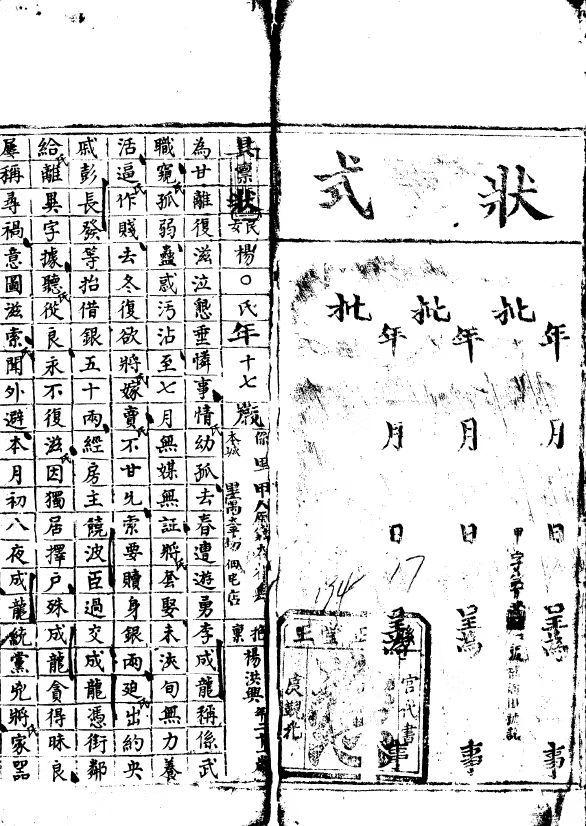 狀式
年 月 日 呈為 事
批
年 月 日 呈為 事
批
年 月 日 呈為 事
批
194 17
官代書
具稟狀民婦楊〇氏年十七歲
抱稟楊洪興年二十歲
為甘離復滋泣懇垂憐事情氏幼孤去春遭遊勇李成龍稱係武
職窺氏孤弱蠱惑污沾至七月無媒無証將氏套娶未浹旬無力養
活逼氏作賤去冬復欲將氏嫁賣氏不甘允索要贖身銀兩廹氏出約央
戚彭長發等抬借銀五十兩經房主饒波臣過交成龍憑街鄰
給氏離異字據聽氏從良永不復滋因獨居擇户殊成龍貪得昧良
屢稱尋禍意圖滋索氏聞外避本月初八夜成龍統黨兇將氏家器